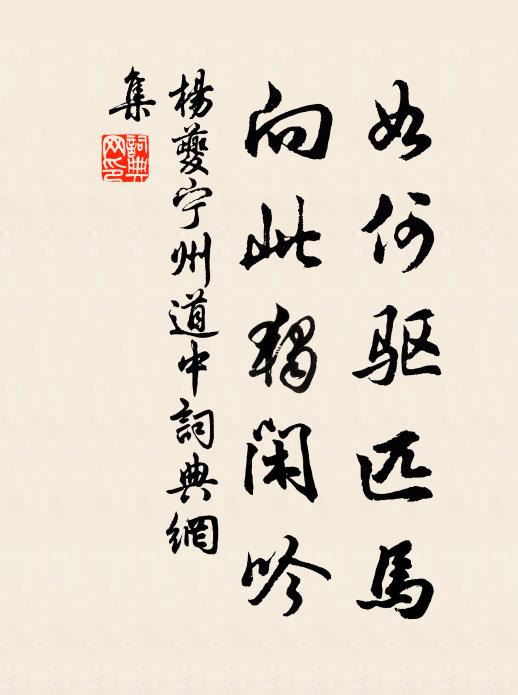 如何驱匹马
向此独闲吟
楊夔宁州道中詞典網
集
詞典
网印